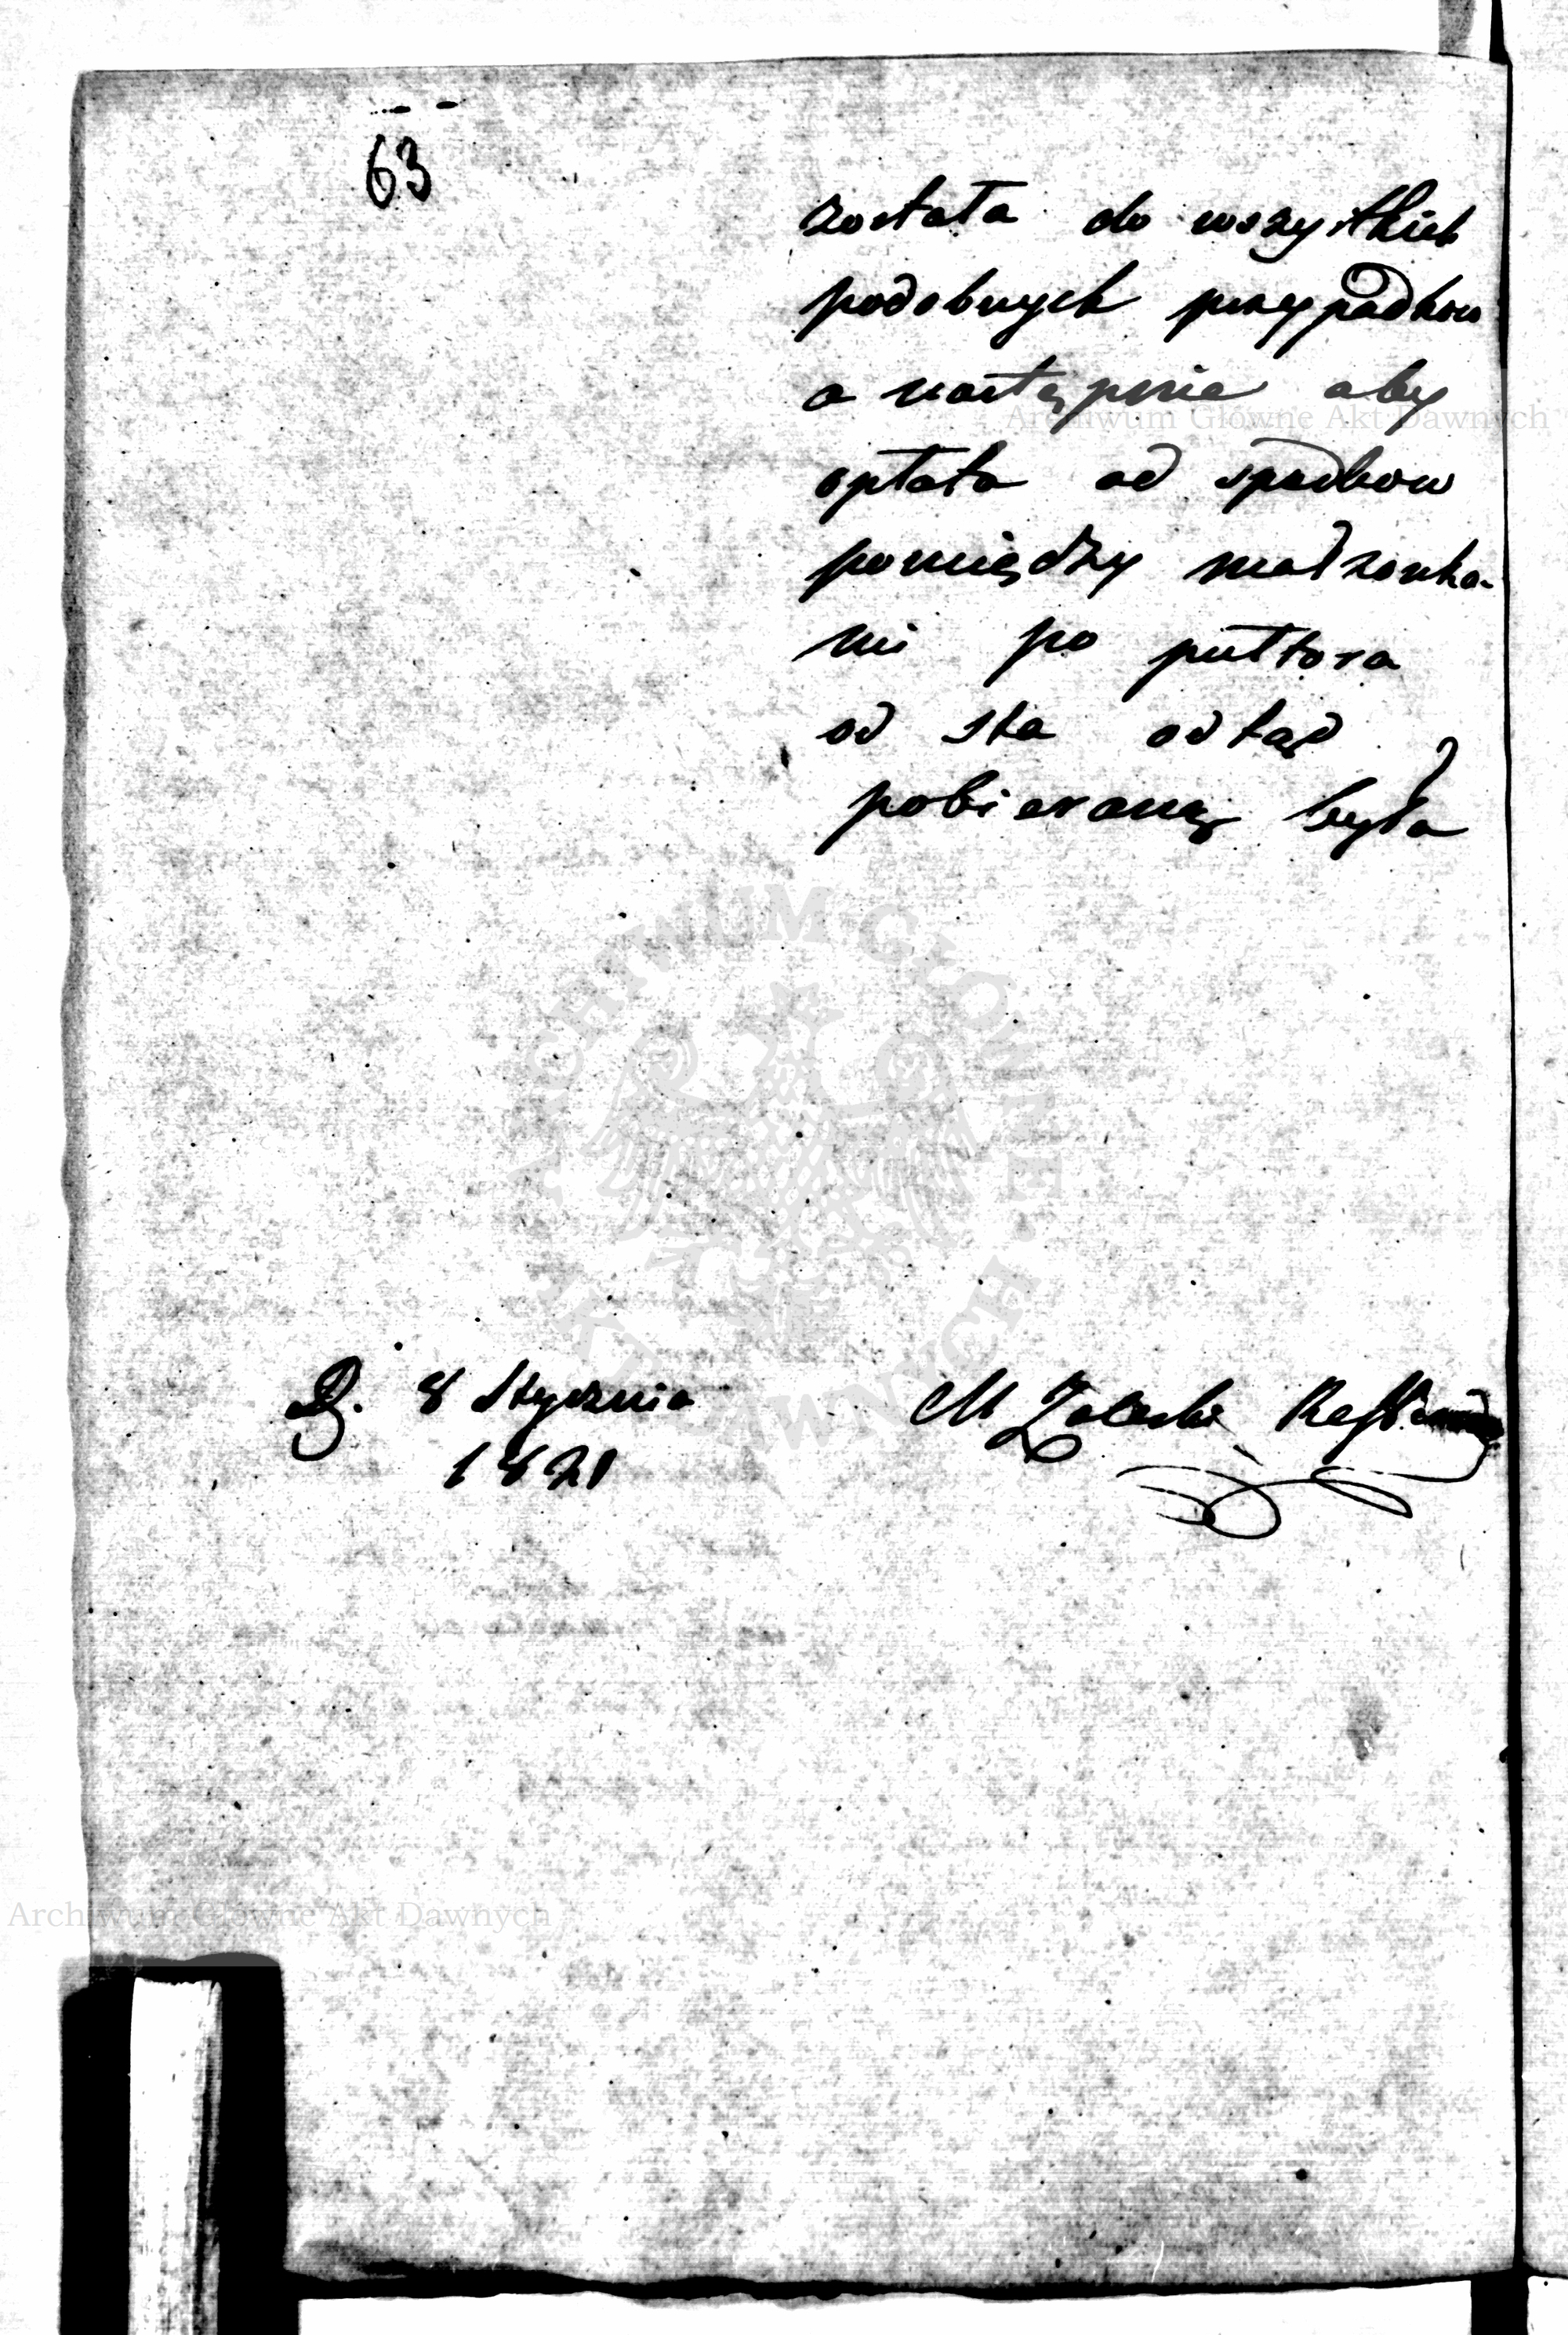 63
została do wszystkich
podobnych przypadkow
a następnie aby
opłata od spadkow
pomiędzy małzonka-
mi po pułtora
od sta odtąd
pobieraną była
D. 8 Stycznia
1821
M Zaleski
Archiwum Główne Akt Dawnych
Archiwum Główne Akt Dawnych
ARCHIWUM GŁÓWNE AKT DAWNYCH